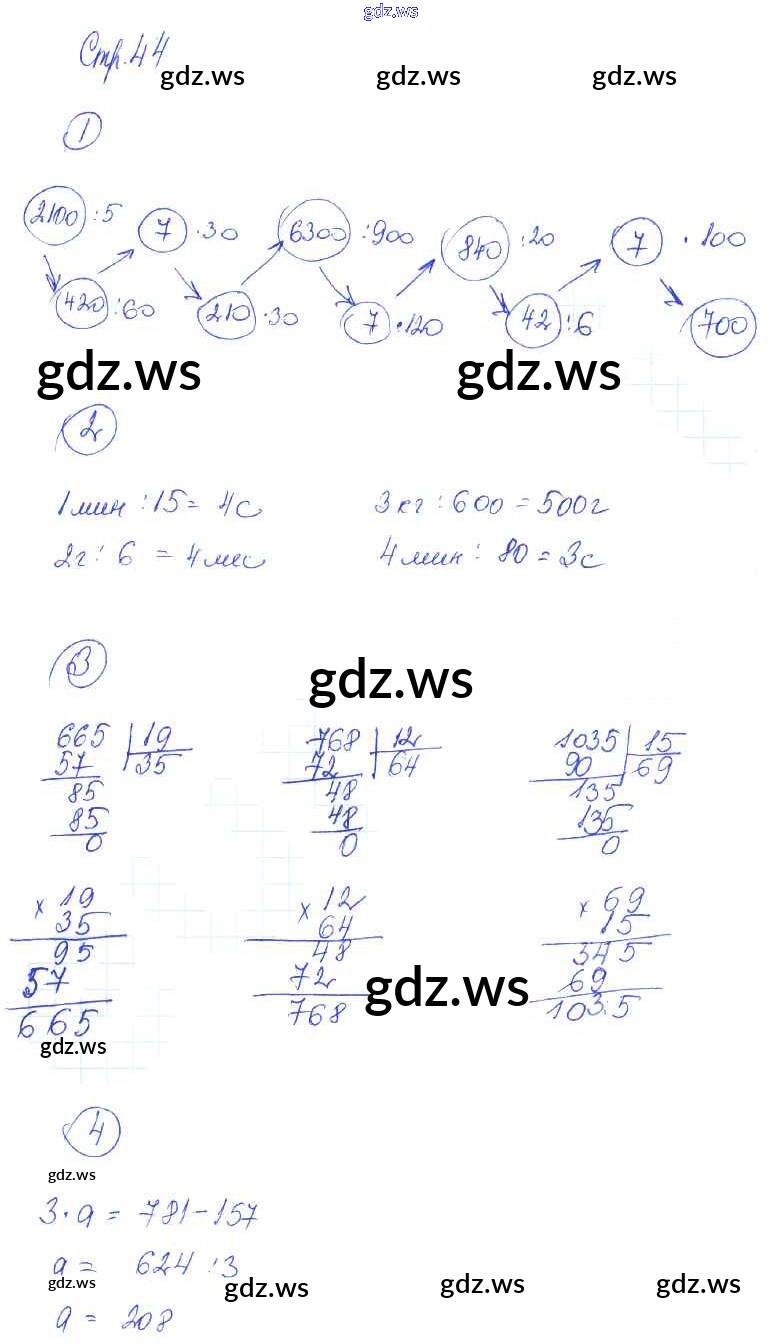 gdz.ws
Стр. 44
gdz.ws gdz.ws gdz.ws
1
2100 :5 7 ·30 6300 :900 840 :20 7 ·100
420 :60 210 ·30 7 ·120 42 :6 700
gdz.ws gdz.ws
2
1 мин : 15 = 4 с 3 кг : 600 = 500 г
2 г : 6 = 4 мес 4 мин : 80 = 3 с
3
gdz.ws
665 19 768 12 1035 15
57 35 72 64 90 69
85 48 135
85 48 135
0 0 0
× 19 × 12 × 69
35 64 15
95 48 345
57 72 69
gdz.ws
665 768 1035
gdz.ws
4
gdz.ws
3 · a = 781 - 157
a = 624 : 3
gdz.ws gdz.ws gdz.ws gdz.ws
a = 208